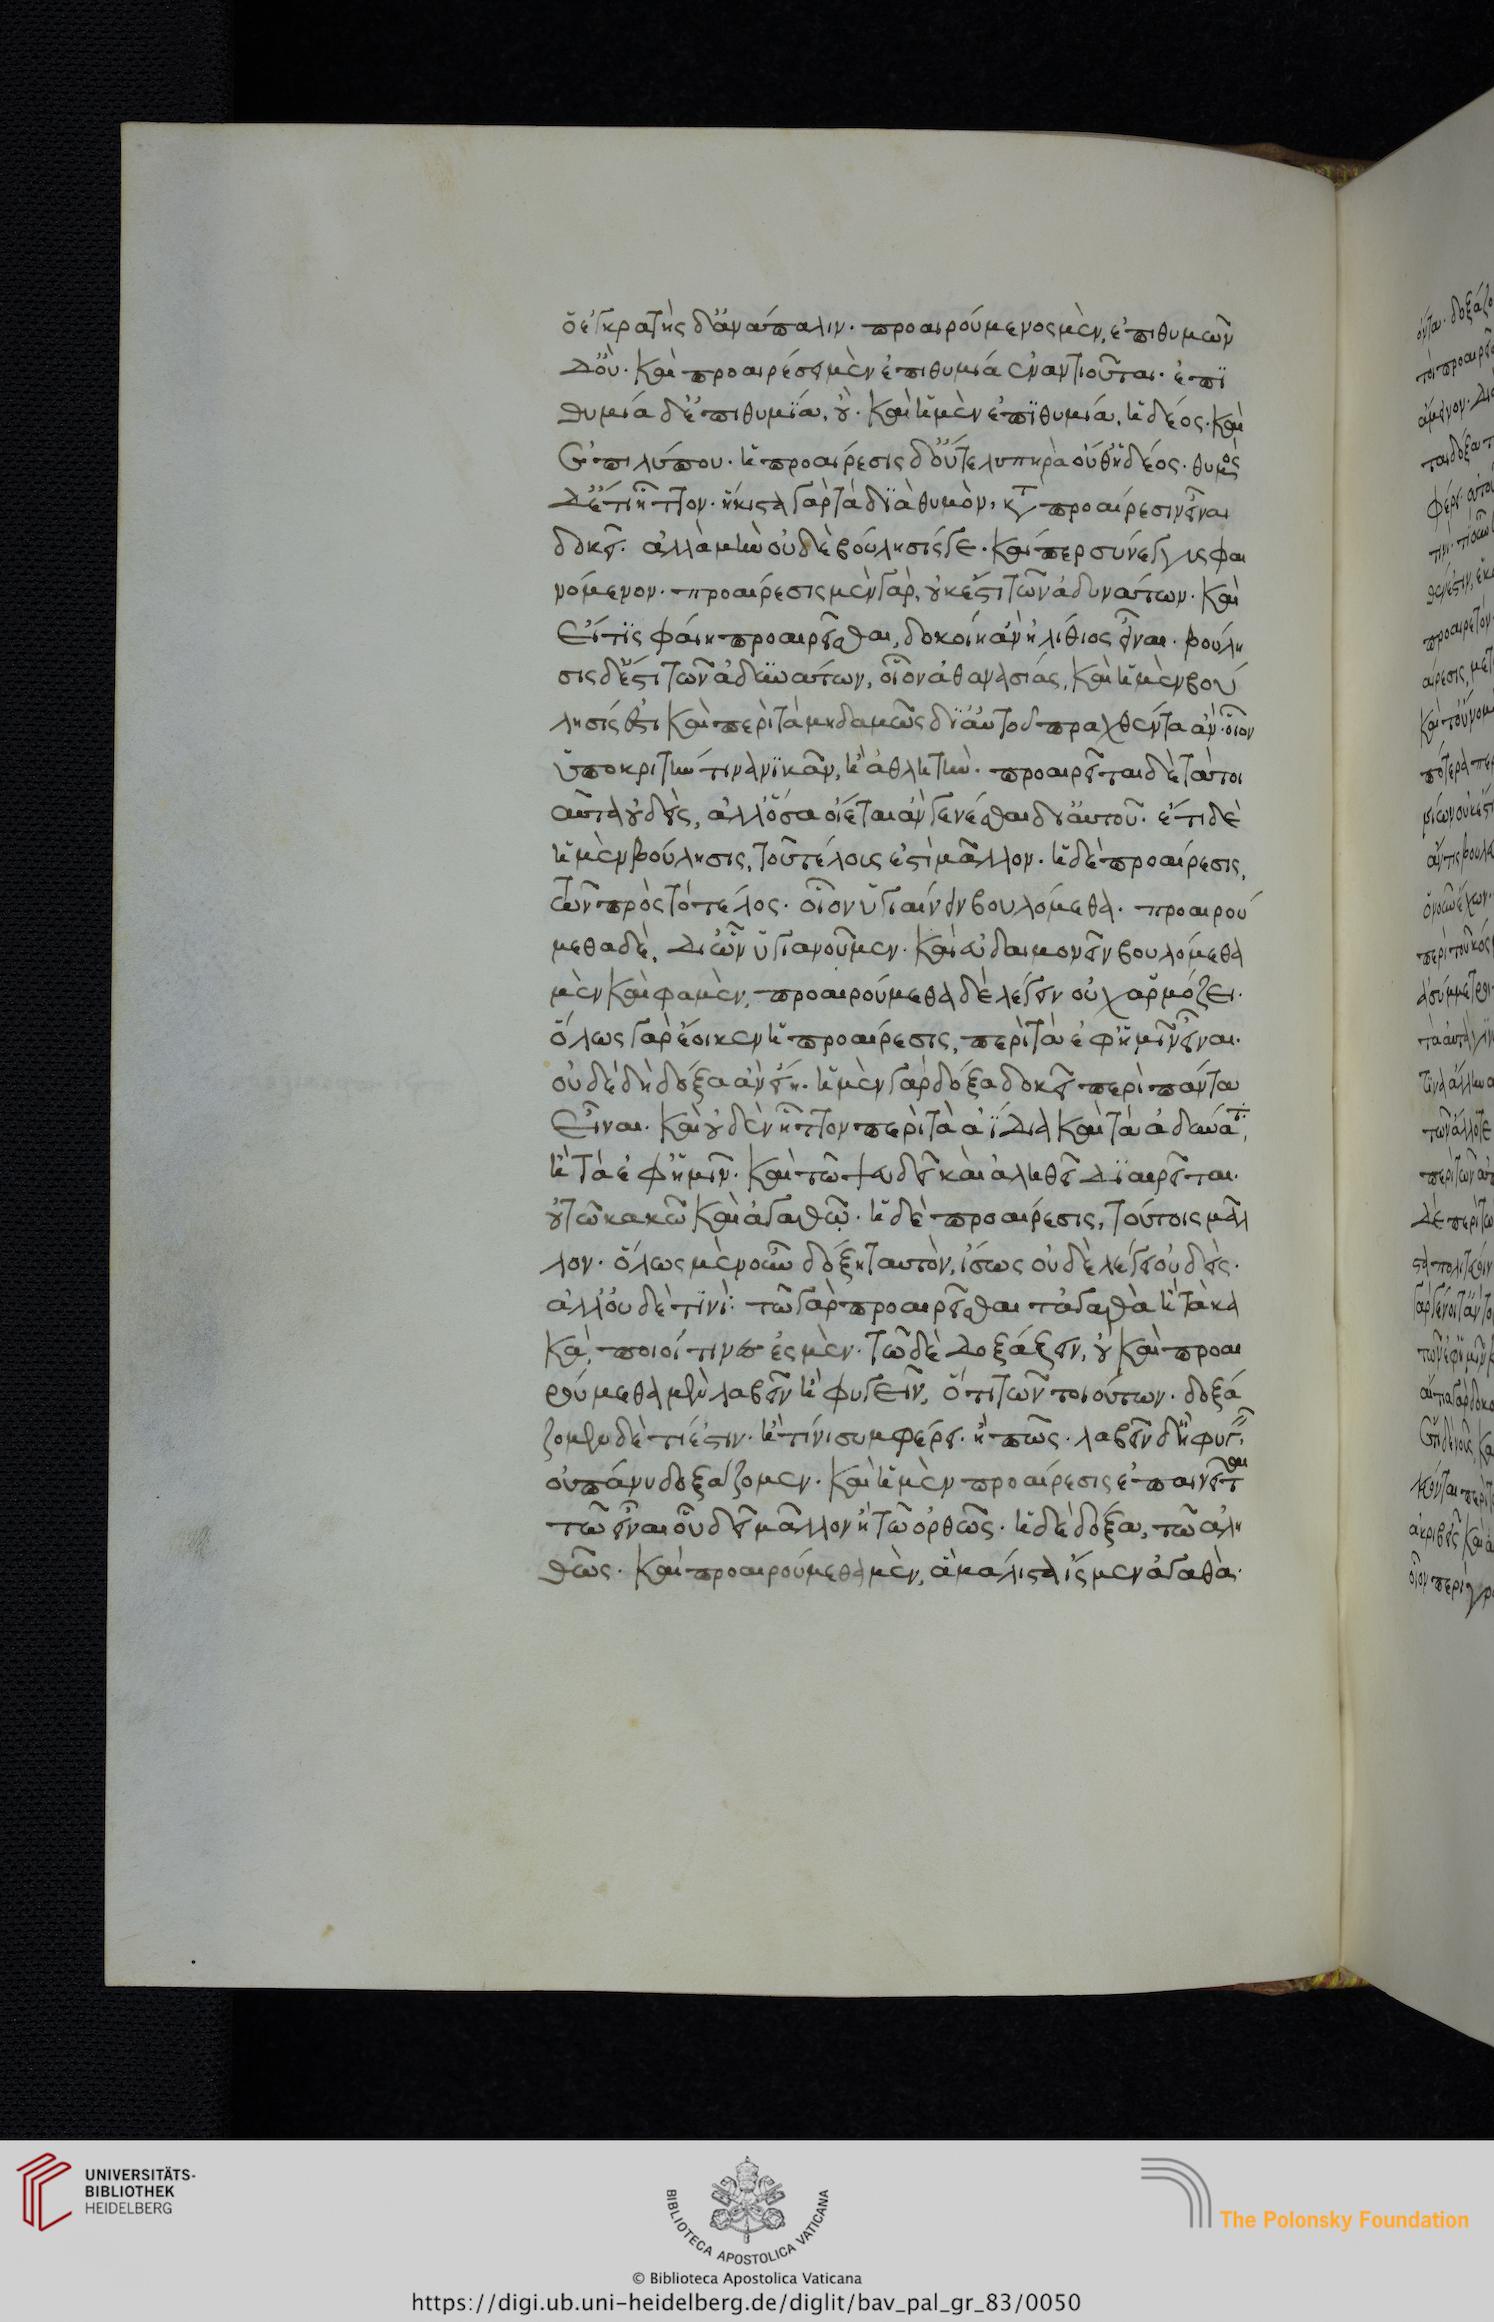 ὁ ἐγκρατὴς δ' ἀνάπαλιν· προαιρούμενος μὲν, ἐπιθυμῶν
δ' οὔ· καὶ προαιρέσει μὲν ἐπιθυμία ἐναντιοῦται· ἐπι
θυμία δ' ἐπιθυμία, οὐ· καὶ ἡ μὲν ἐπιθυμία, ἡδέος· καὶ
ἐπιλύπου· ἡ προαίρεσις δ' οὔτε λυπηρὰ οὔθ' ἡδέος· θυμὸς
δ' ἔτι ἧττον· ἥκιστα γὰρ τὰ διὰ θυμὸν, κατὰ προαίρεσιν εἶναι
δοκεῖ· ἀλλὰ μὴν οὐδὲ βούλησίς γε· καίπερ σύνεγγυς φαι
νόμενον· προαίρεσις μὲν γὰρ, οὐκ ἔστι τῶν ἀδυνάτων· καὶ
εἴ τις φαίη προαιρεῖσθαι, δοκοίη ἂν ἠλίθιος εἶναι· βούλη
σις δ' ἔστι τῶν ἀδυνάτων, οἷον ἀθανασίας, καὶ ἡ μὲν βού
λησίς ἐστι καὶ περὶ τὰ μηδαμῶς δι' αὐτοῦ πραχθέντα ἄν· οἷον
ὑποκριτήν τινα νικᾶν, ἢ ἀθλητήν· προαιρεῖται δὲ τὰ τοι
αῦτα οὐδεὶς, ἀλλ' ὅσα οἴεται ἂν γενέσθαι δι' αὑτοῦ· ἔτι δὲ
ἡ μὲν βούλησις, τοῦ τέλους ἐστὶ μᾶλλον· ἡ δὲ προαίρεσις,
τῶν πρὸς τὸ τέλος· οἷον ὑγιαίνειν βουλόμεθα· προαιρού
μεθα δὲ, δι' ὧν ὑγιανοῦμεν· καὶ εὐδαιμονεῖν βουλόμεθα
μὲν καὶ φαμὲν, προαιρούμεθα δὲ λέγειν οὐχ ἁρμόζει·
ὅλως γὰρ ἔοικεν ἡ προαίρεσις, περὶ τὰ ἐφ' ἡμῖν εἶναι·
οὐδὲ δὴ δόξα ἂν εἴη· ἡ μὲν γὰρ δόξα δοκεῖ περὶ πάντα
εἶναι· καὶ οὐδὲν ἧττον περὶ τὰ ἀΐδια καὶ τὰ ἀδύνατα,
ἢ τὰ ἐφ' ἡμῖν· καὶ τῷ ψευδεῖ καὶ ἀληθεῖ διαιρεῖται·
οὐ τῷ κακῷ καὶ ἀγαθῷ· ἡ δὲ προαίρεσις, τούτοις μᾶλ
λον· ὅλως μὲν οὖν δόξῃ ταυτὸν, ἴσως οὐδὲ λέγει οὐδείς·
ἀλλ' οὐδὲ τινί· τῷ γὰρ προαιρεῖσθαι τἀγαθὰ ἢ τὰ κα
κὰ, ποιοί τινές ἐσμεν· τῷ δὲ δοξάζειν, οὔ· καὶ προαι
ρούμεθα μὲν λαβεῖν ἢ φυγεῖν, ὅ τι τῶν τοιούτων· δοξά
ζομεν δὲ τί ἐστιν· ἢ τίνι συμφέρει· ἢ πῶς· λαβεῖν δ' ἢ φυγεῖν,
οὐ πάνυ δοξάζομεν· καὶ ἡ μὲν προαίρεσις ἐπαινεῖται
τῷ εἶναι οὗ δεῖ μᾶλλον ἢ τῷ ὀρθῶς· ἡ δὲ δόξα, τῷ ἀλη
θῶς· καὶ προαιρούμεθα μὲν, ἃ μάλιστα ἴσμεν ἀγαθὰ·
UNIVERSITÄTS-
BIBLIOTHEK
HEIDELBERG
BIBLIOTECA APOSTOLICA VATICANA
The Polonsky Foundation
© Biblioteca Apostolica Vaticana
https://digi.ub.uni-heidelberg.de/diglit/bav_pal_gr_83/0050